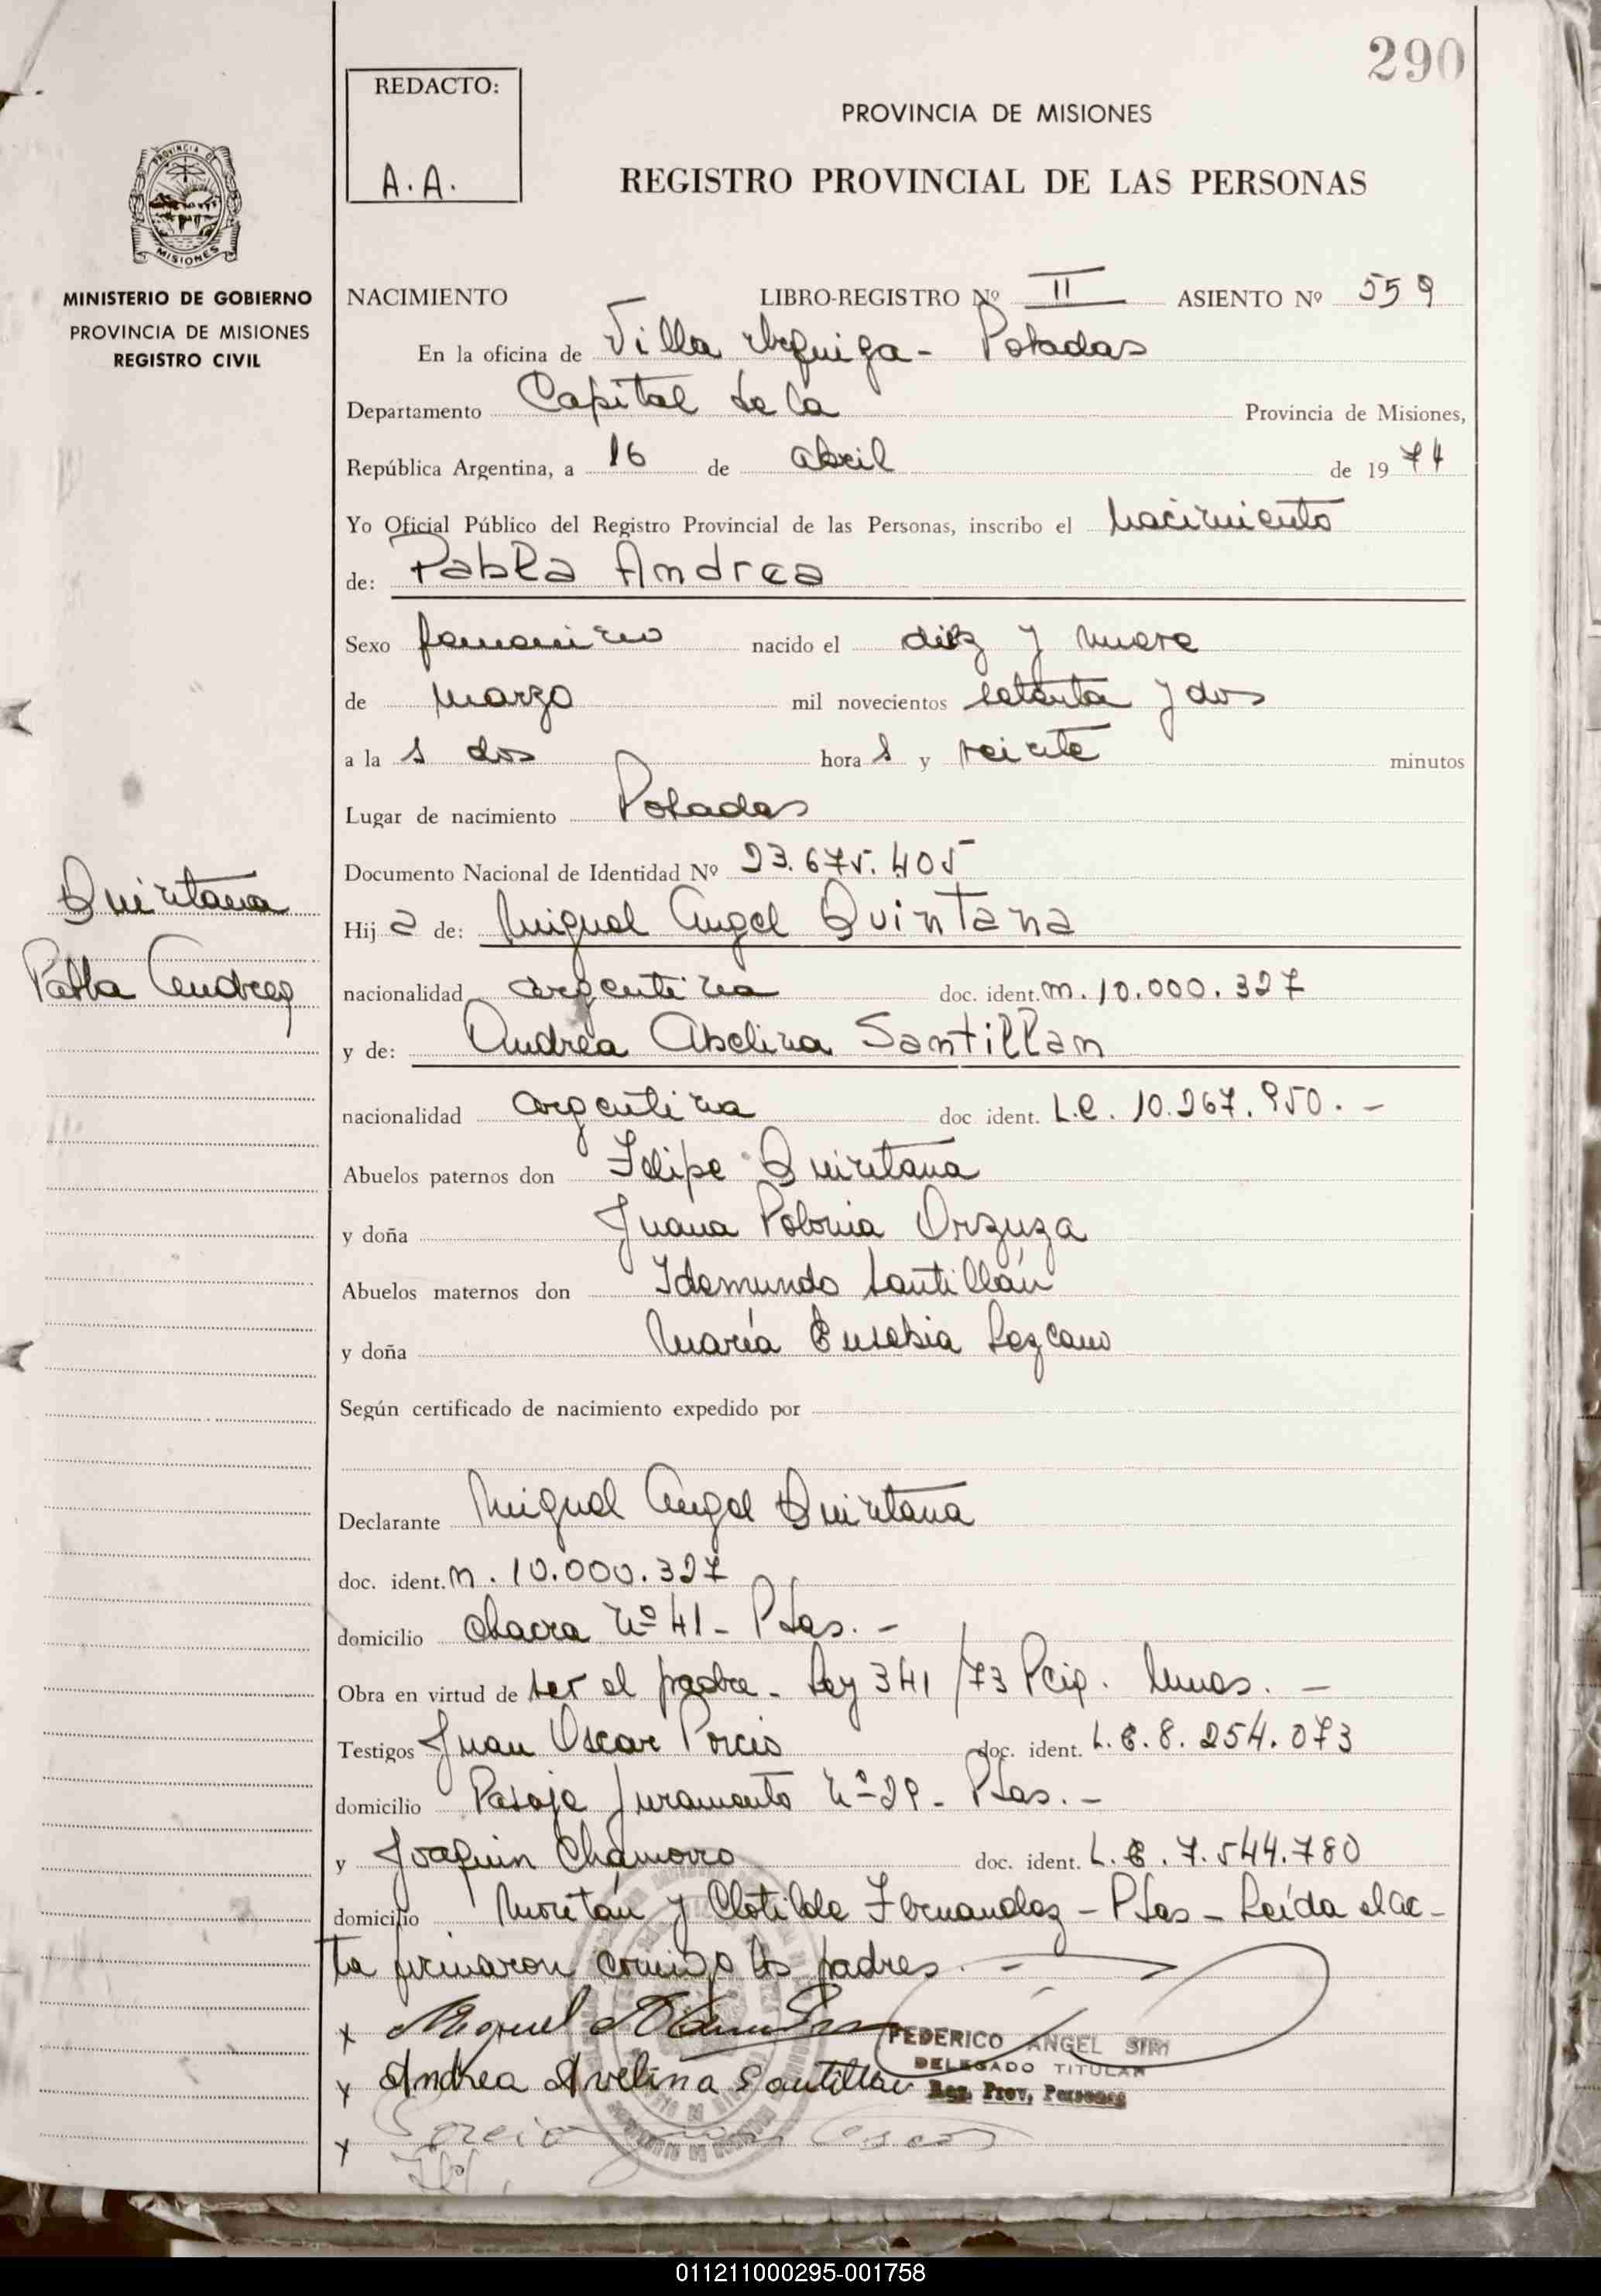 290
REDACTO:
A.A.
PROVINCIA DE MISIONES
REGISTRO PROVINCIAL DE LAS PERSONAS
PROVINCIA DE
MISIONES
MINISTERIO DE GOBIERNO
PROVINCIA DE MISIONES
REGISTRO CIVIL
NACIMIENTO LIBRO-REGISTRO Nº II ASIENTO Nº 559
En la oficina de Villa Urquiza - Posadas
Departamento Capital de la Provincia de Misiones,
República Argentina, a 16 de abril de 1974
Yo Oficial Público del Registro Provincial de las Personas, inscribo el nacimiento
de: Pabla Andrea
Sexo femenino nacido el diez y nueve
de marzo mil novecientos setenta y dos
a la s dos hora s y veinte minutos
Lugar de nacimiento Posadas
Documento Nacional de Identidad Nº 23.675.405
Quintana
Hij a de: Miguel Angel Quintana
Pabla Andrea
nacionalidad argentina doc. ident. M. 10.000.327
y de: Andrea Abelina Santillan
nacionalidad argentina doc ident. L.C. 10.267.950. -
Abuelos paternos don Felipe Quintana
y doña Juana Polonia Orzuza
Abuelos maternos don Idemundo Santillán
y doña María Eusebia Lezcano
Según certificado de nacimiento expedido por
Declarante Miguel Angel Quintana
doc. ident. M. 10.000.327
domicilio chacra Nº 41 - Pdas. -
Obra en virtud de ser el padre - Ley 341/73 Pcia. Mnes. -
Testigos Juan Oscar Porcio doc. ident. L.E. 8.254.073
domicilio Pasaje Juramento Nº 29 - Pdas. -
y Joaquin Chamorro doc. ident. L.E. 7.544.780
domicilio y Clotilde Fernandez - Pdas - Leída el ac-
ta firmaron conmigo los padres. -
x Miguel
FEDERICO ANGEL SIRI
DELEGADO TITULAR
Reg. Prov. Personas
y Andrea Avelina Santillan
x Oscar
011211000295-001758